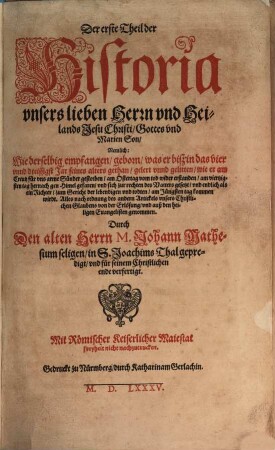 Der erste Theil der
Historia
vnsers lieben Herrn vnd Hei-
lands Jesu Christi/ Gottes vnd
Marien Son/
Nemlich:
Wie derselbig empfangen/ geborn/ was er biß in das vier
vnd dreissigst Jar seines alters gethan/ gelert vnnd gelitten/ wie er am
Creutz für vns arme Sünder gestorben/ am Ostertag vom tod wider erstanden/ am viertzig-
sten tag hernach gen Himel gefaren/ vnd sich zur rechten des Vatters gesetzt/ vnd endtlich als
ein Richter/ zum Gericht der lebendigen vnd todten/ am Jüngsten tag kommen
wirdt. Alles nach ordnung des andern Artickels vnsers Christli-
chen Glaubens von der Erlösung/ vnd auß den hei-
ligen Euangelisten genommen.
Durch
Den alten Herrn M. Johann Mathe-
sium seligen/ in S. Joachims Thal gepre-
digt/ vnd für seinem Christlichen
ende verfertigt.
Mit Römischer Keiserlicher Maiestat
freyheit nicht nachzutrucken.
Gedruckt zu Nürmberg/ durch Katharinam Gerlachin.
M. D. LXXXV.